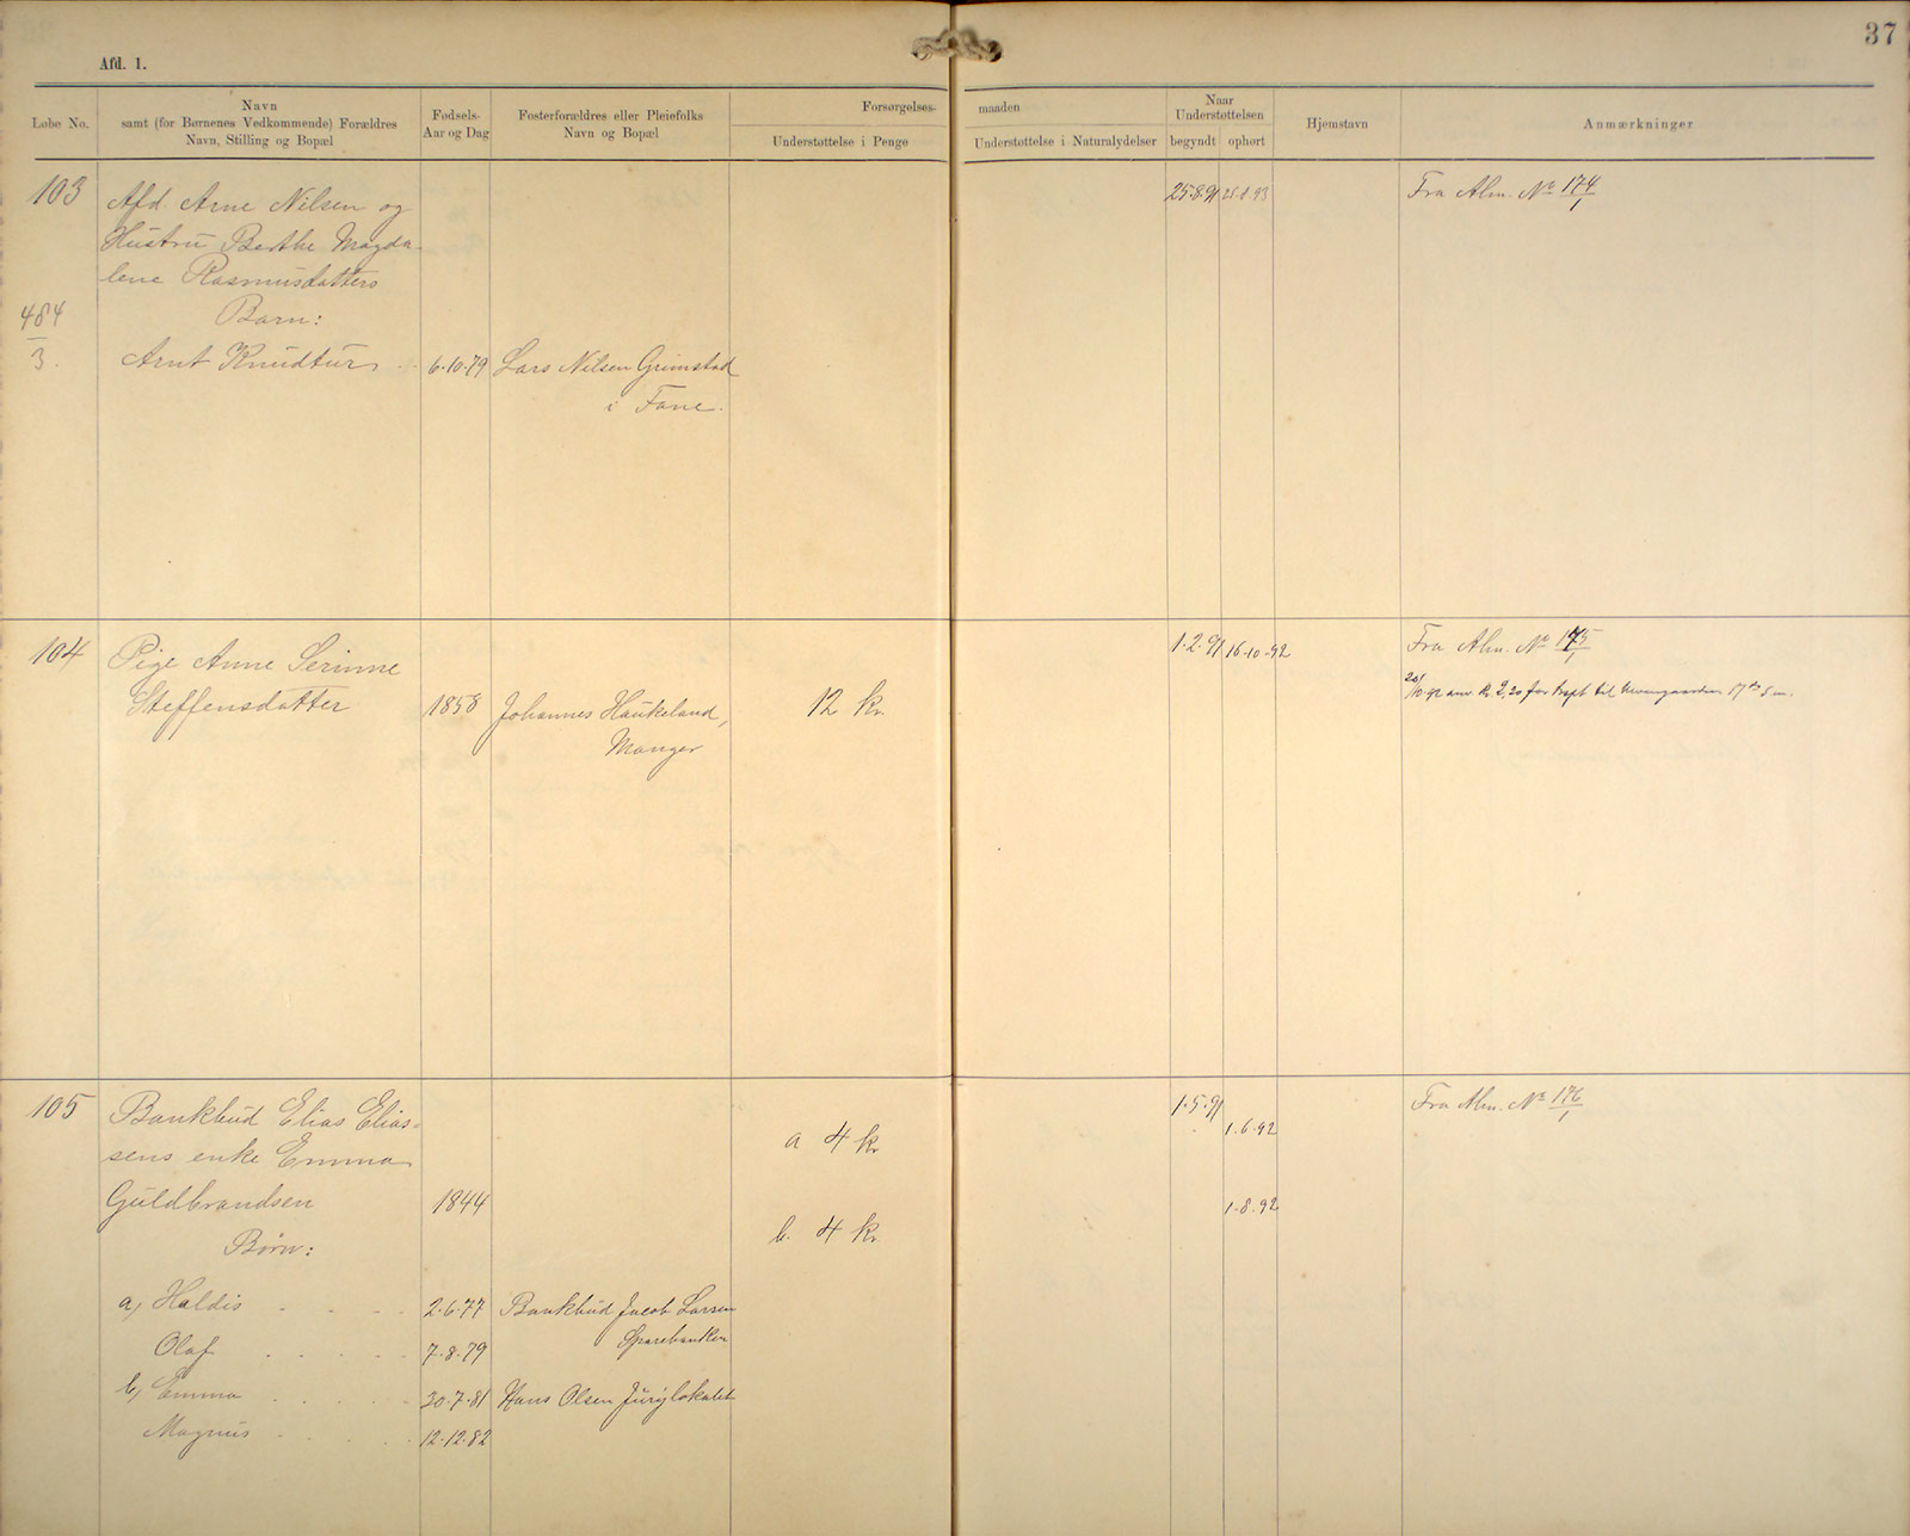 37
Afd. 1.
Løbe No.
Navn
samt (for Børnenes Vedkommende) Forældres
Navn, Stilling og Bopæl
Fødsels-
Aar og Dag
Fosterforældres eller Pleiefolks
Navn og Bopæl
Forsørgelses-
maaden
Understøttelse i Penge
Understøttelse i Naturalydelser
Naar
Understøttelsen
begyndt
ophørt
Hjemstavn
Anmærkninger
103
Afd. Arne Nilsen og
Hustru Berthe Magda-
lene Rasmusdatters
Barn:
484
3.
Arnt Knudtur
6.10.79
Lars Nilsen Grimstad
i Fane.
25.8.91
25.8.93
Fra Alm. No 174/1
104
Pige Anne Serinne
Steffensdatter
1858
Johannes Haukeland,
Manger
12 kr.
1.2.91
16-10-92
Fra Alm. No 175/1
20/10.92 anv. Kr 2,20 for til 17 d.s.
105
Bankbud Elias Elias-
sens enke Emma
Guldbrandsen
1844
Børn:
a 4 kr
b. 4 kr
1.5.91
1.6.92
1.8.92
Fra Alm. No 176/1
a, Haldis
2.6.77
Bankbud Jacob Larsen
Sparebanken
Olaf
7.8.79
b, Emma
30.7.81
Hans Olsen Jurylokalet
Magnus
12.12.82